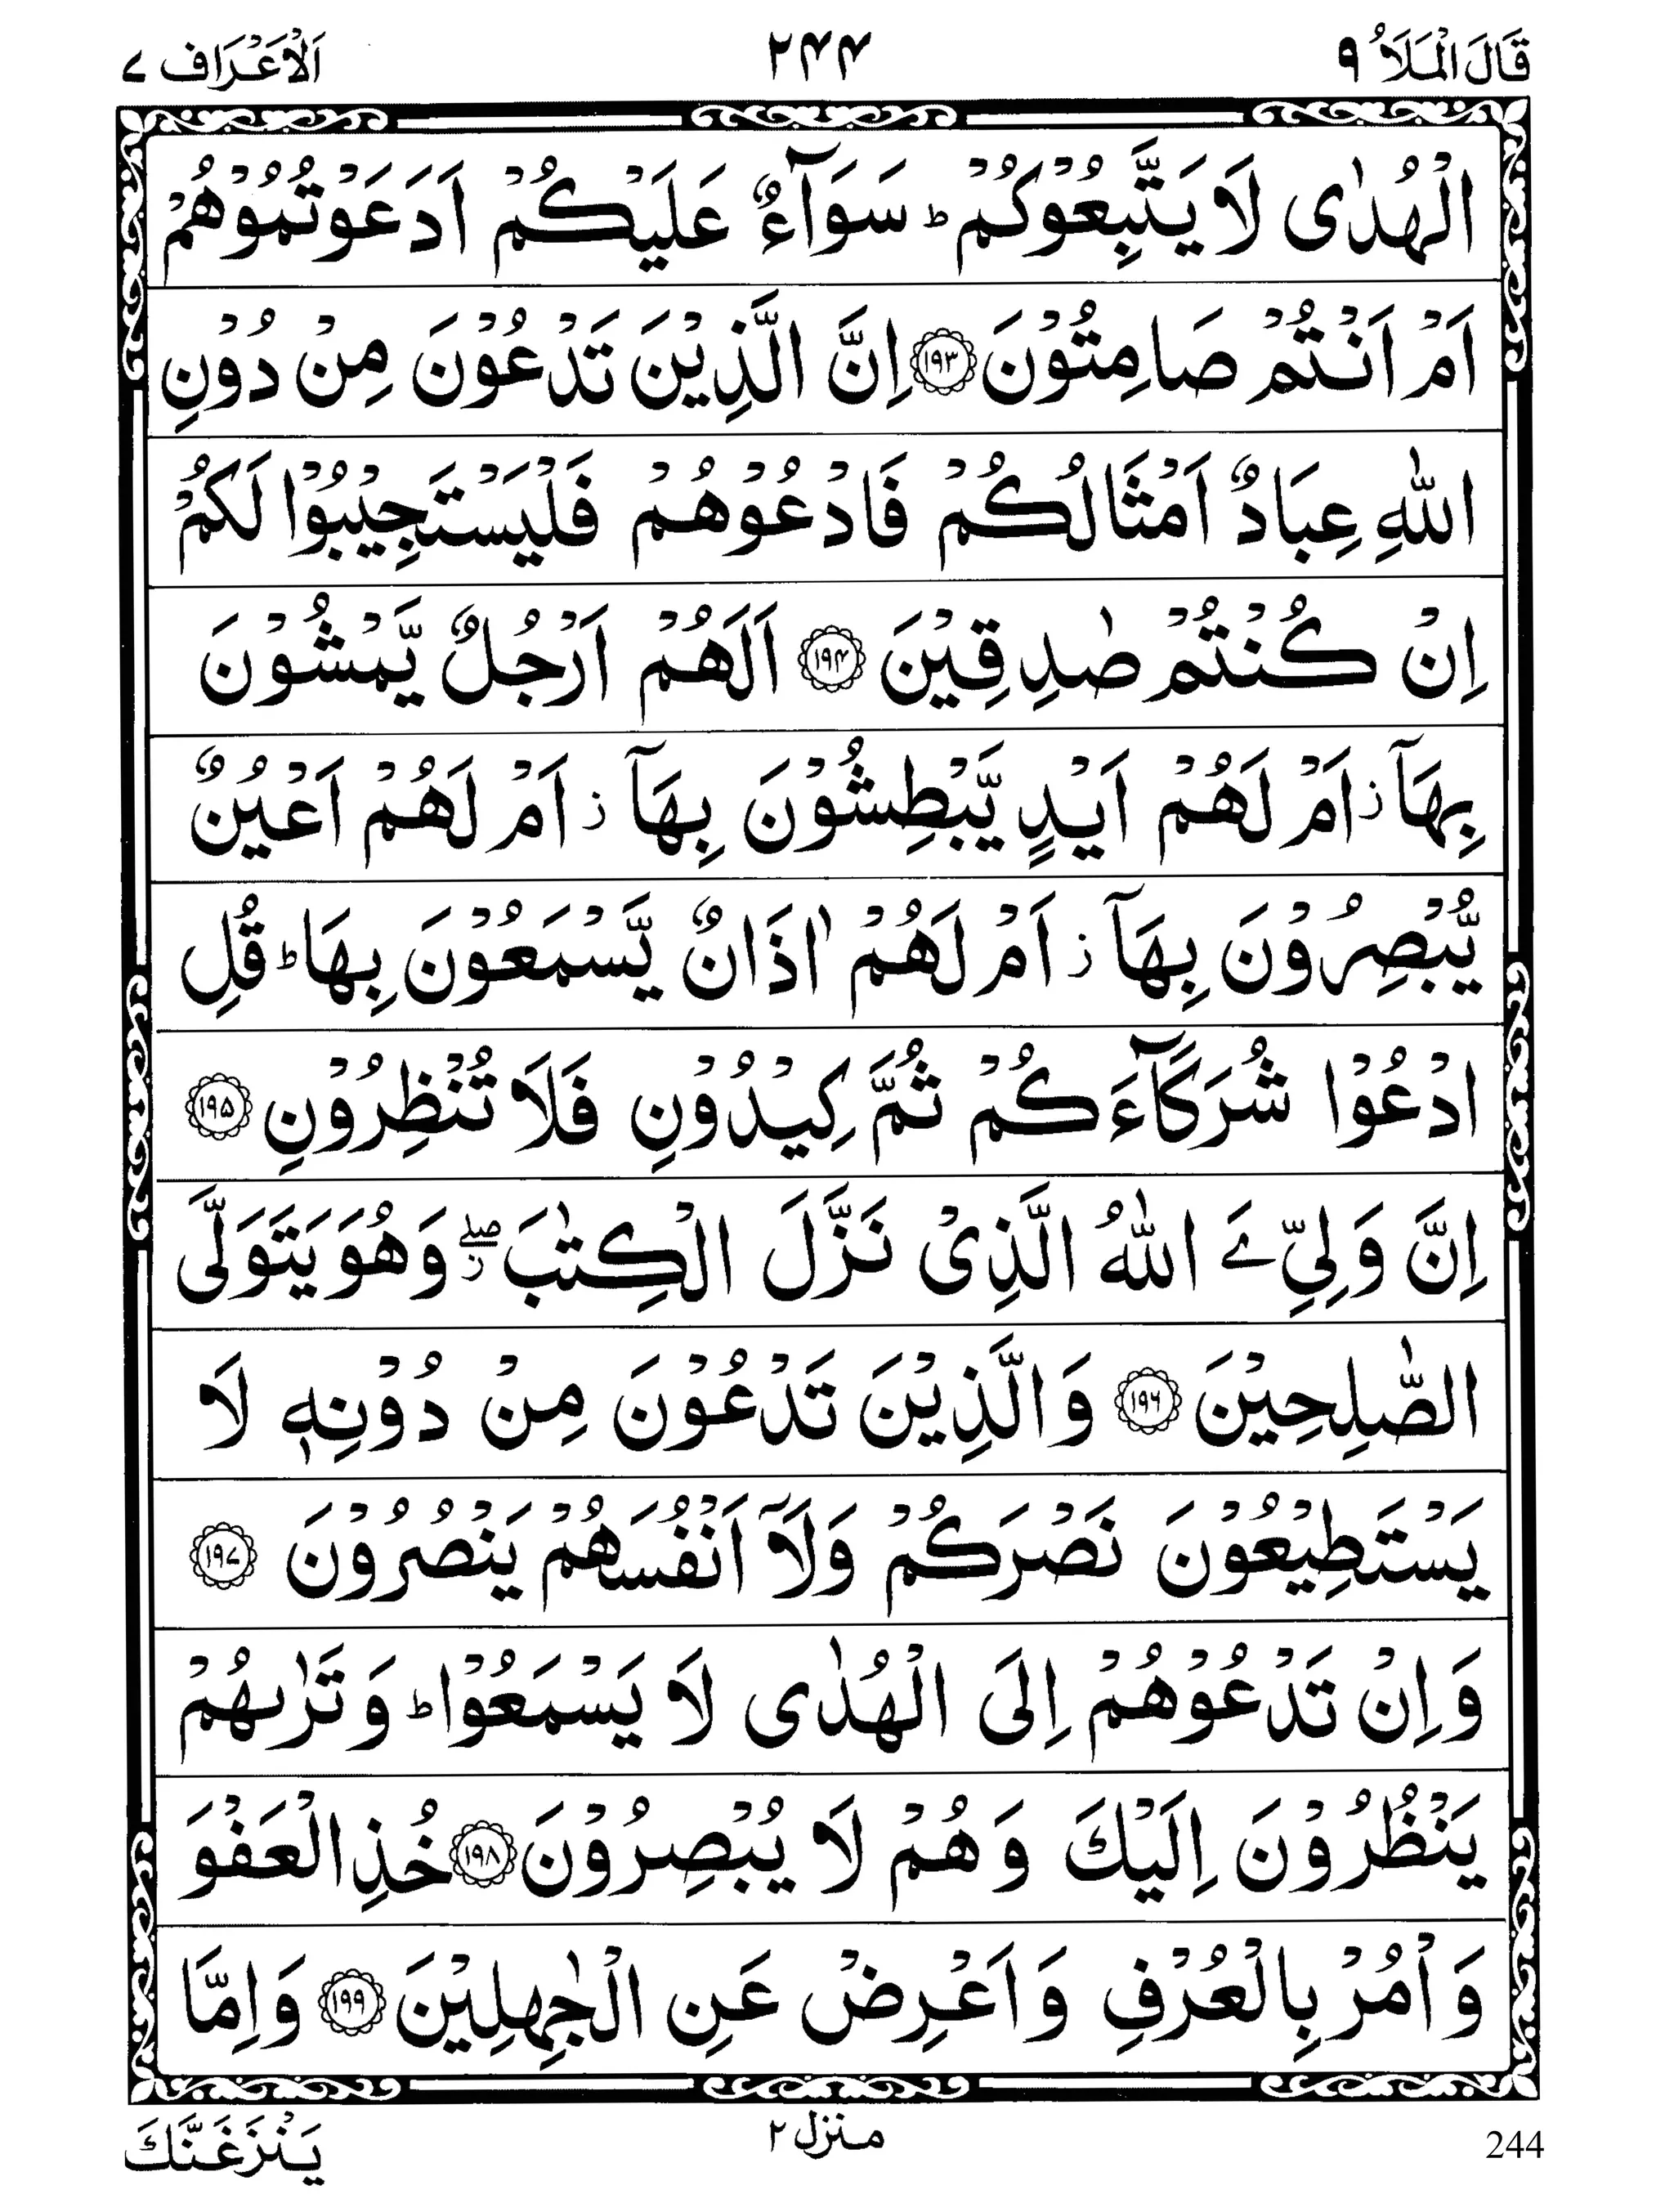 قَالَ الْمَلَاُ ٩ ٢٤٤ اَلْاَعْرَاف ٧
الْهُدٰى لَا يَتَّبِعُوْكُمْ ؕ سَوَآءٌ عَلَيْكُمْ اَدَعَوْتُمُوْهُمْ
اَمْ اَنْتُمْ صَامِتُوْنَ ۝١٩٣ اِنَّ الَّذِيْنَ تَدْعُوْنَ مِنْ دُوْنِ
اللّٰهِ عِبَادٌ اَمْثَالُكُمْ فَادْعُوْهُمْ فَلْيَسْتَجِيْبُوْا لَكُمْ
اِنْ كُنْتُمْ صٰدِقِيْنَ ۝١٩٤ اَلَهُمْ اَرْجُلٌ يَّمْشُوْنَ
بِهَآ ؗ اَمْ لَهُمْ اَيْدٍ يَّبْطِشُوْنَ بِهَآ ؗ اَمْ لَهُمْ اَعْيُنٌ
يُّبْصِرُوْنَ بِهَآ ؗ اَمْ لَهُمْ اٰذَانٌ يَّسْمَعُوْنَ بِهَا ؕ قُلِ
ادْعُوْا شُرَكَآءَكُمْ ثُمَّ كِيْدُوْنِ فَلَا تُنْظِرُوْنِ ۝١٩٥
اِنَّ وَلِيِّۦَ اللّٰهُ الَّذِىْ نَزَّلَ الْكِتٰبَ ۖؗ وَهُوَ يَتَوَلَّى
الصّٰلِحِيْنَ ۝١٩٦ وَالَّذِيْنَ تَدْعُوْنَ مِنْ دُوْنِهٖ لَا
يَسْتَطِيْعُوْنَ نَصْرَكُمْ وَلَآ اَنْفُسَهُمْ يَنْصُرُوْنَ ۝١٩٧
وَاِنْ تَدْعُوْهُمْ اِلَى الْهُدٰى لَا يَسْمَعُوْا ؕ وَتَرٰىهُمْ
يَنْظُرُوْنَ اِلَيْكَ وَهُمْ لَا يُبْصِرُوْنَ ۝١٩٨ خُذِ الْعَفْوَ
وَاْمُرْ بِالْعُرْفِ وَاَعْرِضْ عَنِ الْجٰهِلِيْنَ ۝١٩٩ وَاِمَّا
منزل ٢
يَنْزَغَنَّكَ
244